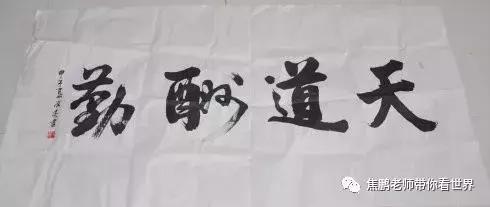 天道酬勤
焦鹏老师带你看世界